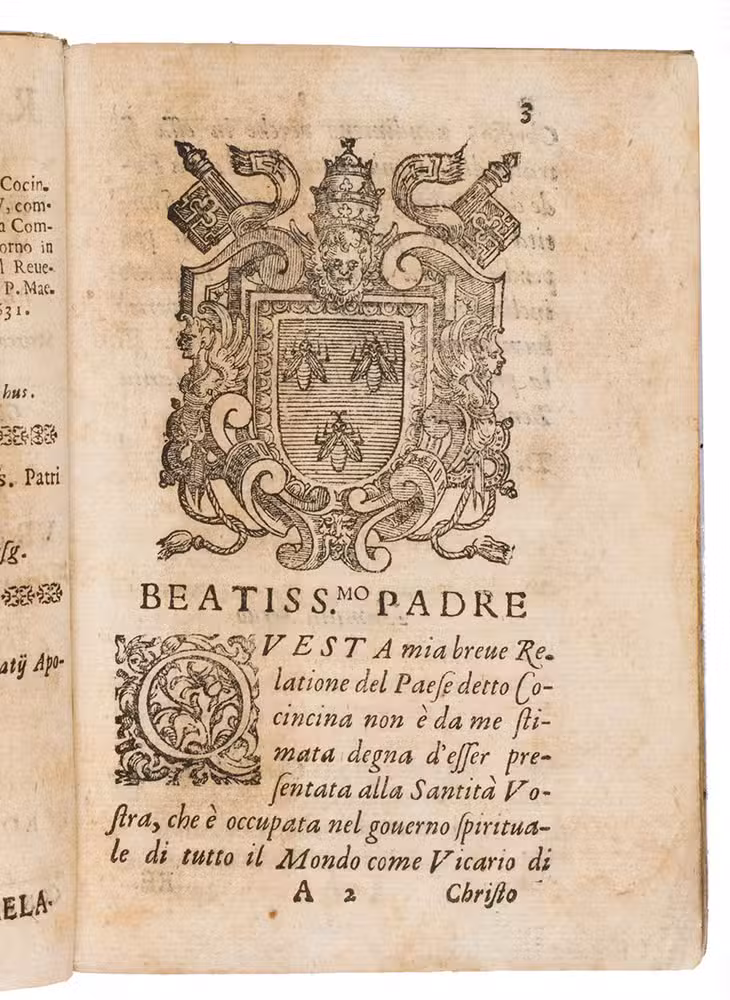 Cocin.
V, com-
a Com-
orno in
l Reue-
P. Mae.
631.
bus.
s. Patri
ſg.
atij Apo-
ELA.
3
BEATISS.MO PADRE
QVESTA mia breue Re-
latione del Paeſe detto Co-
cincina non è da me ſti-
mata degna d'eſſer pre-
ſentata alla Santità Vo-
ſtra, che è occupata nel gouerno ſpiritua-
le di tutto il Mondo come Vicario di
A 2 Chriſto